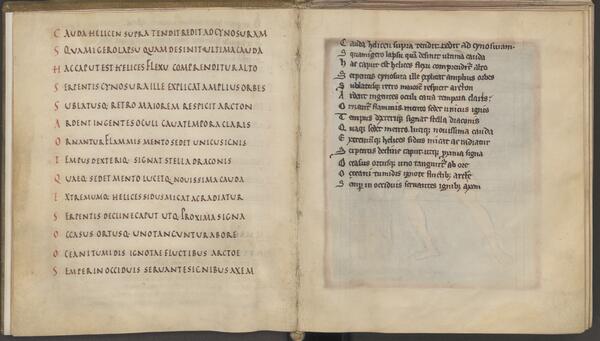 CAUDA HELICEN SUPRA TENDIT REDIT AD CYNOSURAM
SQUAMIGERO LAPSU QUAM DESINIT ULTIMA CAUDA
HAC CAPUT EST HELICES FLEXU COMPRENDITUR ALTO
SERPENTIS CYNOSURA ILLE EXPLICAT AMPLIUS ORBES
SUBLATUSQ; RETRO MAIOREM RESPICIT ARCTON
ARDENT INGENTES OCULI CAUA TEMPORA CLARIS
ORNANTUR FLAMMIS MENTO SEDET UNICUS IGNIS
TEMPUS DEXTERIU SIGNAT STELLA DRACONIS
QUAEQ; SEDET MENTO LUCETQ; NOUISSIMA CAUDA
EXTREMUMQ; HELICES SIDUS MICAT AC RADIATUR
SERPENTIS DECLINE CAPUT UTQ; PROXIMA SIGNA
OCCASUS ORTUSQ; UNO TANGUNTUR ABORE
OCEANI TUMIDIS IGNOTAE FLUCTIBUS ARCTOE
SEMPER IN OCCIDUIS SERUANTES IGNIBUS AXEM
Cauda helicen supra tendit redit ad cynosuram
Squamigero lapsu qua desinit ultima cauda
hac caput est helices flexu comprenditur alto
Serpentis cynosura ille explicat amplius orbes
Sublatusq; retro maiorem respicit arcton
Ardent ingentes oculi caua tempora claris
Ornantur flammis mento sedet unicus ignis
Tempus dexteriusq; signat stella draconis
Quaeq; sedet mento lucetq; nouissima cauda
Extremumq; helices sidus micat ac radiatur
Serpentis decline caput utq; proxima signa
Occasus ortusq; uno tangunt ab ore
Oceani tumidis ignote fluctib; arctoe
Semper in occiduis seruantes ignib; axem